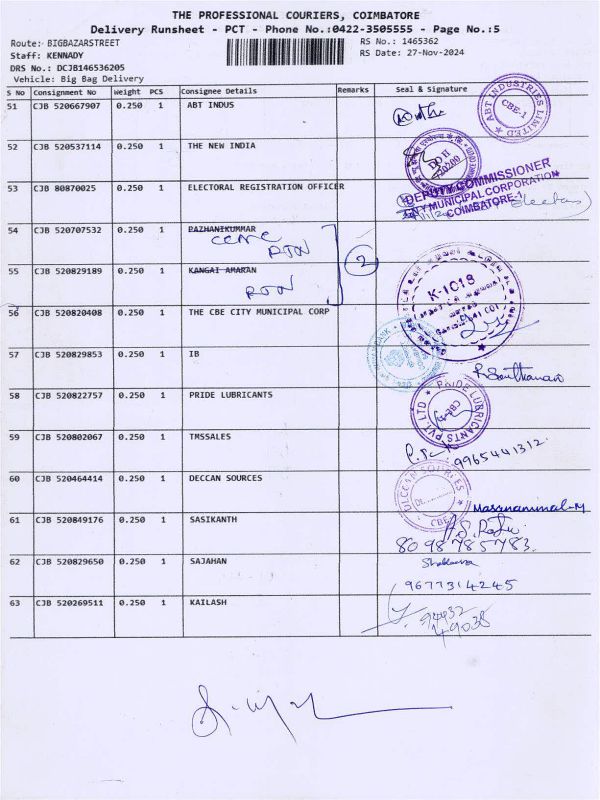 THE PROFESSIONAL COURIERS, COIMBATORE
Delivery Runsheet - PCT - Phone No.:0422-3505555 - Page No.:5
Route: BIGBAZARSTREET
RS No.: 1465362
Staff: KENNADY
RS Date: 27-Nov-2024
DRS No.: DCJB146536205
Vehicle: Big Bag Delivery
S No Consignment No Weight PCS Consignee Details Remarks Seal & Signature
51 CJB 520667907 0.250 1 ABT INDUS
ABT INDUSTRIES LIMITED
CBE-1
52 CJB 520537114 0.250 1 THE NEW INDIA
DO II
720200
53 CJB 80870025 0.250 1 ELECTORAL REGISTRATION OFFICER
DEPUTY COMMISSIONER
CITY MUNICIPAL CORPORATION
COIMBATORE-1
54 CJB 520707532 0.250 1 PAZHANIKUMMAR
RTN
2
55 CJB 520829189 0.250 1 KANGAI AMARAN
RTN
K-1018
56 CJB 520820408 0.250 1 THE CBE CITY MUNICIPAL CORP
641 001
57 CJB 520829853 0.250 1 IB
58 CJB 520822757 0.250 1 PRIDE LUBRICANTS
PRIDE LUBRICANTS PVT. LTD
CBE
59 CJB 520802067 0.250 1 TMSSALES
9965441312
60 CJB 520464414 0.250 1 DECCAN SOURCES
DECCAN SOURCES
CBE
61 CJB 520849176 0.250 1 SASIKANTH
8098785783
62 CJB 520829650 0.250 1 SAJAHAN
9677314245
63 CJB 520269511 0.250 1 KAILASH
94432
49038